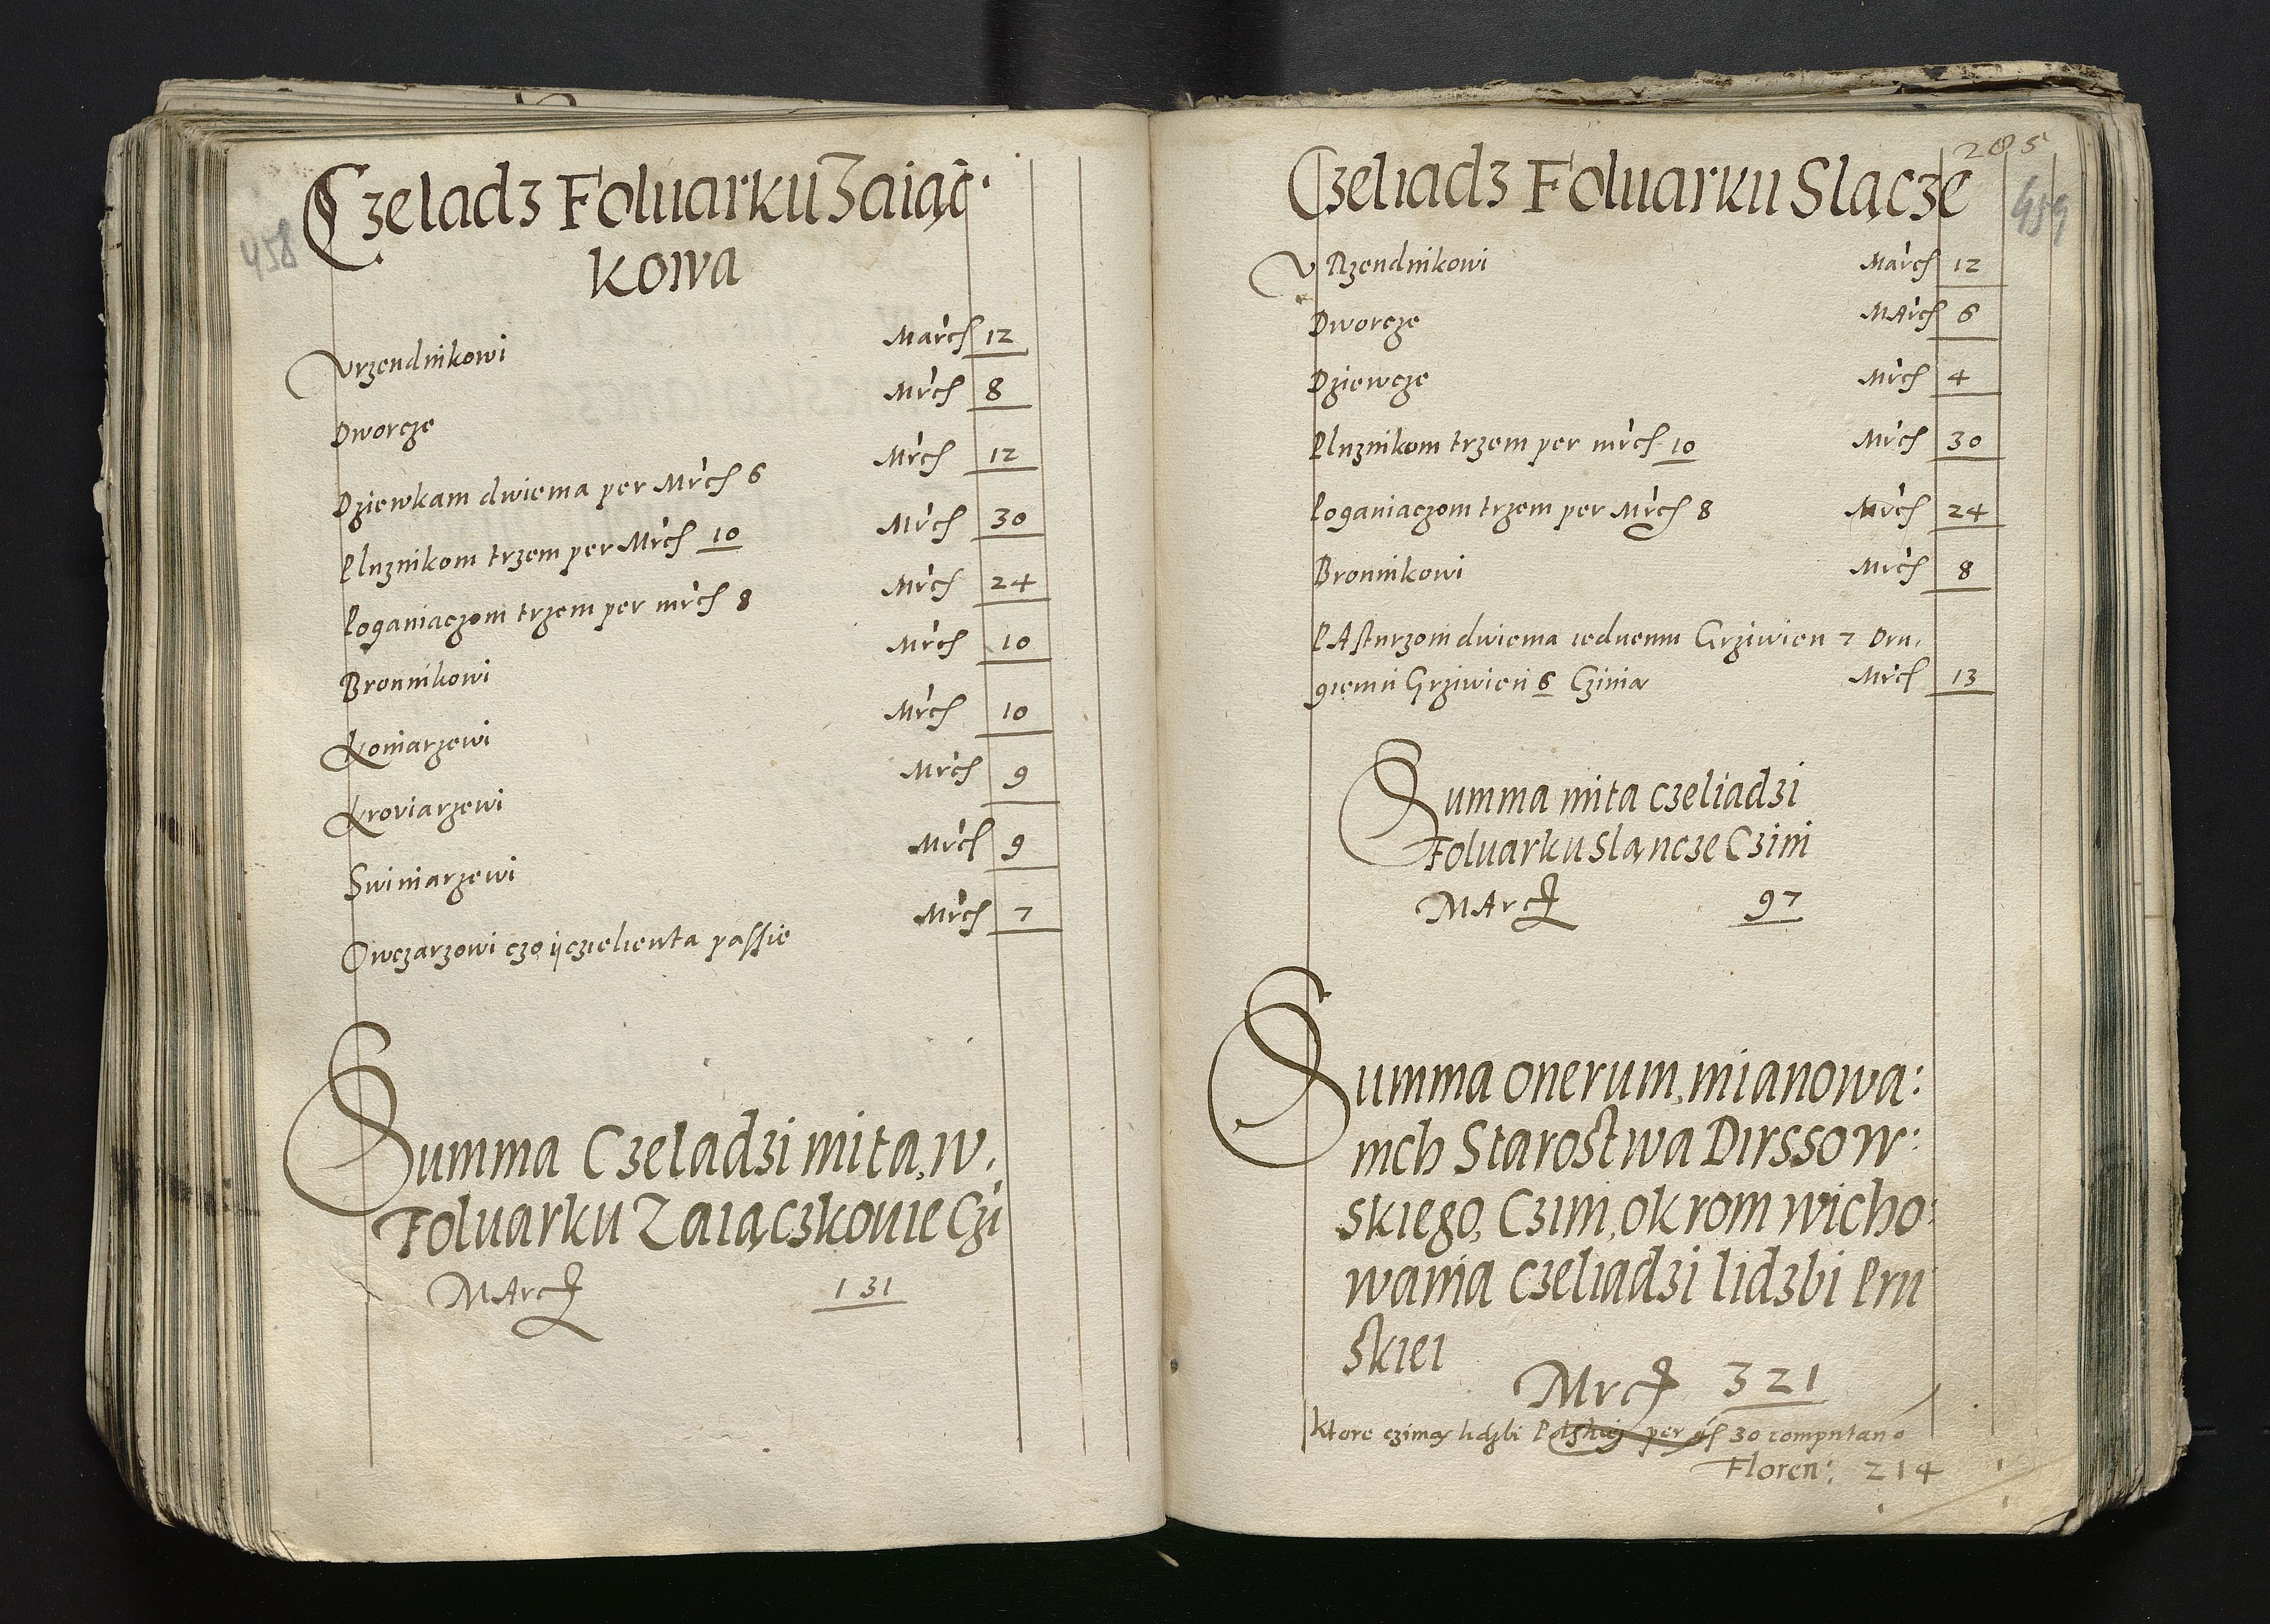 458
Czeladz Foluarku Zaiącż.
kowa
Vrzendnikowi Marcż 12
Dworcze Mrcż 8
Dziewkam dwiema per Mrcż 6 Mrcż 12
Pluznikom trzem per Mrcż 10 Mrcż 30
Poganiaczom trzem per mrcż 8 Mrcż 24
Bronnikowi Mrcż 10
Koniarzewi Mrcż 10
Kroviarzewi Mrcż 9
Swiniarzewi Mrcż 9
Owczarzowi czo ÿ czielienta passie Mrcż 7
Summa Czeladzi mita, w.
Foluarku Zaiączkowie Czi
Marcż 131
205
459
Czeliadz Foluarku Slącze
VRzendnikowi Marcż 12
Dworcze Marcż 6
Dziewcze Mrcż 4
Pluznikom trzem per mrcż 10 Mrcż 30
Poganiaczom trzem per Mrcż 8 Mrcż 24
Bronnikowi Mrcż 8
PAsturzom dwiema iednemu Grziwien 7 Dru,
giemu Grziwien 6 Czinia Mrcż 13
Summa mita czeliadzi
Foluarku Slącncze Czini
MArcż 97
Summa onerum, mianowa:
nich Starostwa Dirssow:
skiego, Czini, okrom wicho:
wania czeliadzi lidzbi Pru
skiei
Mrcż 321
Ktore czinią lidzbi Polskiej per 30 computano
Floren: 214